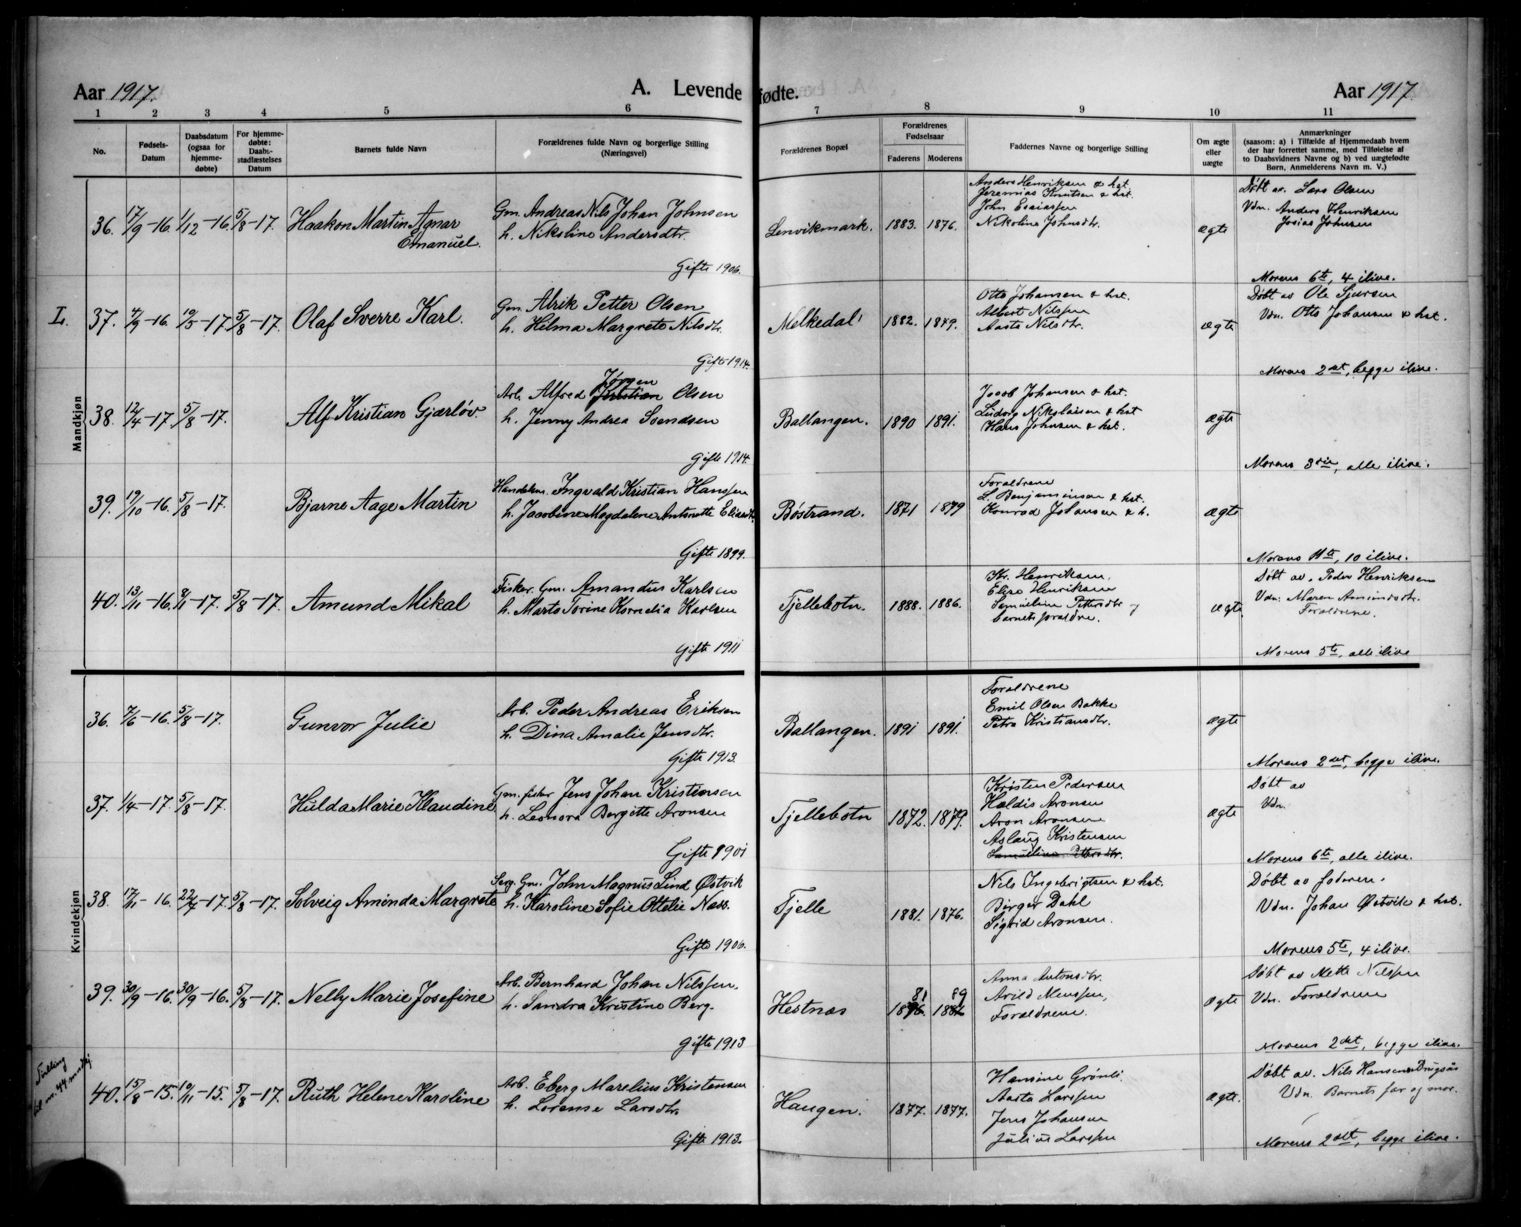 Aar 1917.
A. Levende fødte.
Aar 1917.
1 2 3 4 5 6 7 8 9 10 11
No.
Fødsels-Datum
Daabsdatum (ogsaa for hjemme-døbte)
For hjemme-døbte: Daabs-stadfæstelses Datum
Barnets fulde Navn
Forældrenes fulde Navn og borgerlige Stilling (Næringsvei)
Forældrenes Bopæl
Forældrenes Fødselsaar
Faderens
Moderens
Faddernes Navne og borgerlige Stilling
Om ægte eller uægte
Anmærkninger
(saasom: a) i Tilfælde af Hjemmedaab hvem
der har forrettet samme, med Tilføielse af
to Daabsvidners Navne og b) ved uægtefødte
Børn, Anmelderens Navn m. V.)
Mandkjøn
36. 17/9-16 1/12-16 5/8-17 Haakon Martin Agnar
Emanuel.
Gm. Andreas Nils Johan Johnsen
h. Nikoline Andersdtr.
Gifte 1906.
Lenvikmark. 1883. 1876.
Anders Henriksen & hst.
Jeremias Knutsen & hst.
John Esaiassen
Nikoline Johnsdtr.
ægte
Døbt av Lars Olsen
Vdn. Anders Henriksen
Josias Johnsen
Morens 6te, 4 ilive.
I. 37. 5/8-17. Olaf Sverre Karl.
Gm. Alrik Petter Olsen
h. Helma Margrete Nilsdtr.
Gifte 1914.
Melkedal 1882. 1889.
Otto Johansen & hst.
Albert Nilssen
Aasta Nilsdtr.
ægte
Døbt av Ole Sjursen
Vdn. Otto Johansen & hst.
Morens 2det, begge ilive.
38. 12/4-17 5/8-17. Alf Kristian Gjærløv.
Jørgen
Arb. Alfred Kristian Olsen
h. Jenny Andrea Svendsen
Gifte 1914.
Ballangen. 1890 1891.
Jacob Johansen & hst.
Ludvig Nikolaisen & hst
Hans Johnsen & hst.
ægte
Morens 3die, alle ilive.
39. 19/10-16. 5/8-17. Bjarne Aage Martin
Handelsm. Ingvald Kristian Hanssen
h. Jacobine Magdalene Antonette
Gifte 1899.
Bøstrand. 1871 1879
Forældrene
L. Benjaminsen & hst.
Konrad Johansen & h.
ægte
Morens 11te, 10 ilive.
40. 13/11-16. 5/8-17 Amund Mikal
Fisker. Gm. Amandus Karlsen
h. Marta Torine Kornelia Karlsen
Gifte 1911
Fjellebotn. 1888. 1886.
Kr. Henriksen.
Henriksen
Samuline Pettersdtr
barnets forældre.
ægte
Døbt av. Peder Henriksen
Vdn. Maren Amundsdtr.
Forældrene
Morens 5te, alle ilive
Kvindekjøn
36. 7/6-16. 5/8-17. Gunvor Julie
Arb. Peder Andreas Eriksen
h. Dina Amalie Jensdtr.
Gifte 1913.
Ballangen. 1891 1891.
Forældrene
Emil Olsen Bakke
Petra Kristiansdtr.
ægte
Morens 2det, begge ilive.
37. 1/4-17. 5/8-17. Hulda Marie Klaudine
Gm. fisker Jens Johan Kristensen
h. Leonora Bergitte Aronsen
Gifte 1901
Fjellebotn 1872. 1879.
Kristen Pedersen
Haldis Aronsen
Aron Aronsen
Aslaug Kristensen
Samuline Pettersdtr.
ægte
Døbt av
Vdn.
Morens 6te, alle ilive.
38. 17/11-16. 5/8-17. Solveig Aminda Margrete
Gm. John Magnus Lind Østvik
h. Karoline Sofie Ottelie Næss.
Gifte 1906.
Fjelle 1881. 1876.
Nils Ingebrigtsen & hst.
Birger Dahl
Sigrid Aronsen.
ægte
Døbt av faderen.
Vdn. Johan Østvik & hst.
Morens 5te, 4 ilive.
39. 30/9-16. 30/9-16. 5/8-17 Nelly Marie Josefine
Arb. Bernhard Johan Nilssen.
h. Sandra Kristine Berg.
Gifte 1913
Hestnæs 81 89
Anna Antonsdtr.
Arild Monssen,
Forældrene.
Ægte
Døbt av Mette Nilssen
Vdn. Forældrene
Morens 2det, begge ilive.
40. 15/8-15. 19/11-15. 5/8-17. Ruth Helene Karoline
Arb. Eberg Marelius Kristensen
h. Lorense Larsdtr.
Gifte 1913.
Haugen. 1877. 1877.
Hansine Grønli.
Aasta Larssen
Jens Johansen
Julius Larssen
ægte.
Døbt av. Nils Hansen
Vdn. Barnets far og mor.
Morens 2det, begge ilive.